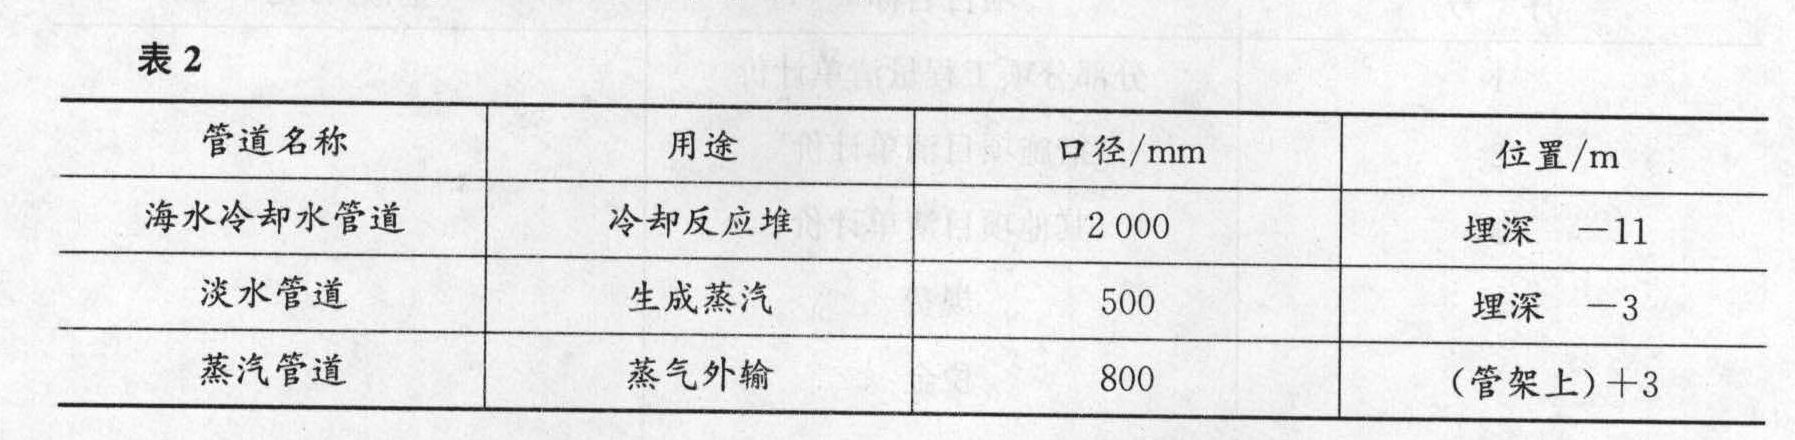 表2
管道名称 用途 口径/mm 位置/m
海水冷却水管道 冷却反应堆 2 000 埋深 －11
淡水管道 生成蒸汽 500 埋深 －3
蒸汽管道 蒸气外输 800 (管架上)＋3